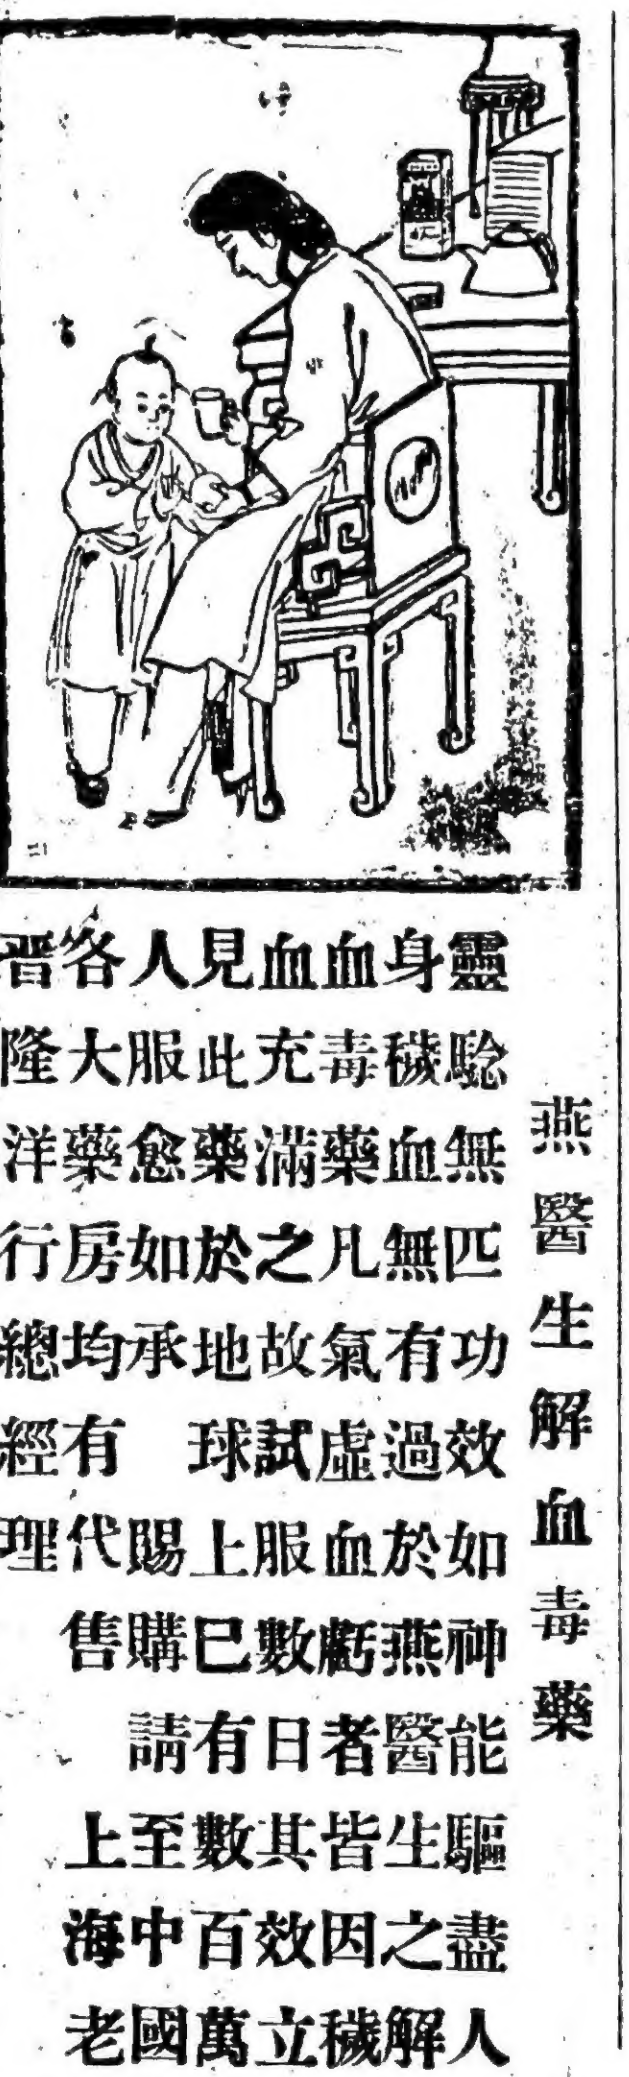 燕醫生解血毒藥
靈騐無匹功效如神能驅盡人
身穢血無有過於燕醫生之解
血毒藥凡氣虛血虧者皆因穢
血充滿之故試服數日其效立
見此藥於地球上巳有數百萬
人服愈如承 賜購請至中國
各大藥房均有代售 上海老
晋隆洋行總經理